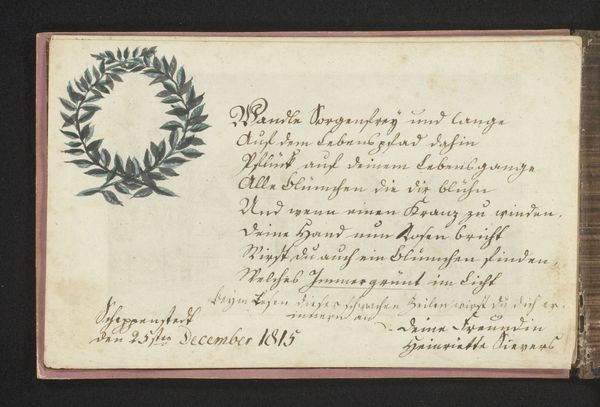 Wandle Sorgenfrey und lange
Auf dem Lebenspfad dahin
Pflück auf deinem Lebensgange
Alle Blümchen die dir blühn
Und wenn einen Kranz zu winden,
Deine Hand nun Rosen bricht
Wirst du auch ein Blümchen finden
Welches Immergrünt im Licht
Beym Lesen dieser schwachen Zeilen wirst du dich er-
innern an
Deine Freundin
Heinriette Sievers
Scheppenstedt
den 25sten December 1815